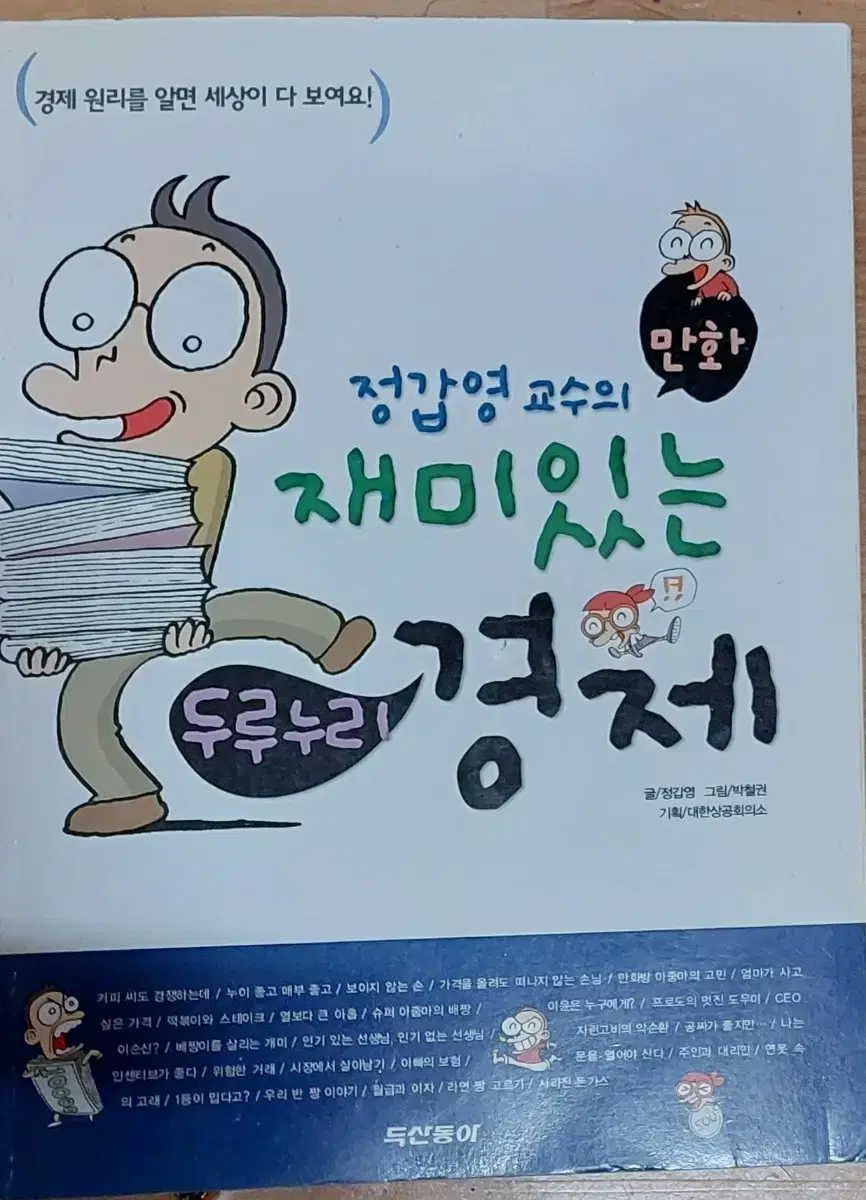 경제 원리를 알면 세상이 다 보여요!
만화
정갑영 교수의
재미있는
두루누리 경제
글/정갑영 그림/박철권
기획/대한상공회의소
커피 씨도 경쟁하는데 / 누이 좋고 매부 좋고 / 보이지 않는 손 / 가격을 올려도 떠나지 않는 손님 / 만화방 아줌마의 고민 / 엄마가 사고
싶은 가격 / 떡볶이와 스테이크 / 열보다 큰 아홉 / 슈퍼 아줌마의 배짱 / 이윤은 누구에게? / 프로도의 멋진 도우미 / CEO
이순신? / 베짱이를 살리는 개미 / 인기 있는 선생님, 인기 없는 선생님 / 자린고비의 악순환 / 공짜가 좋지만… / 나는
인센티브가 좋다 / 위험한 거래 / 시장에서 살아남기 / 아빠의 보험 / 문을 열어야 산다 / 주인과 대리인 / 연못 속
의 고래 / 1등이 밉다고? / 우리 반 짱 이야기 / 월급과 이자 / 라면 짱 고르기 / 사라진 돈가스
10000
두산동아